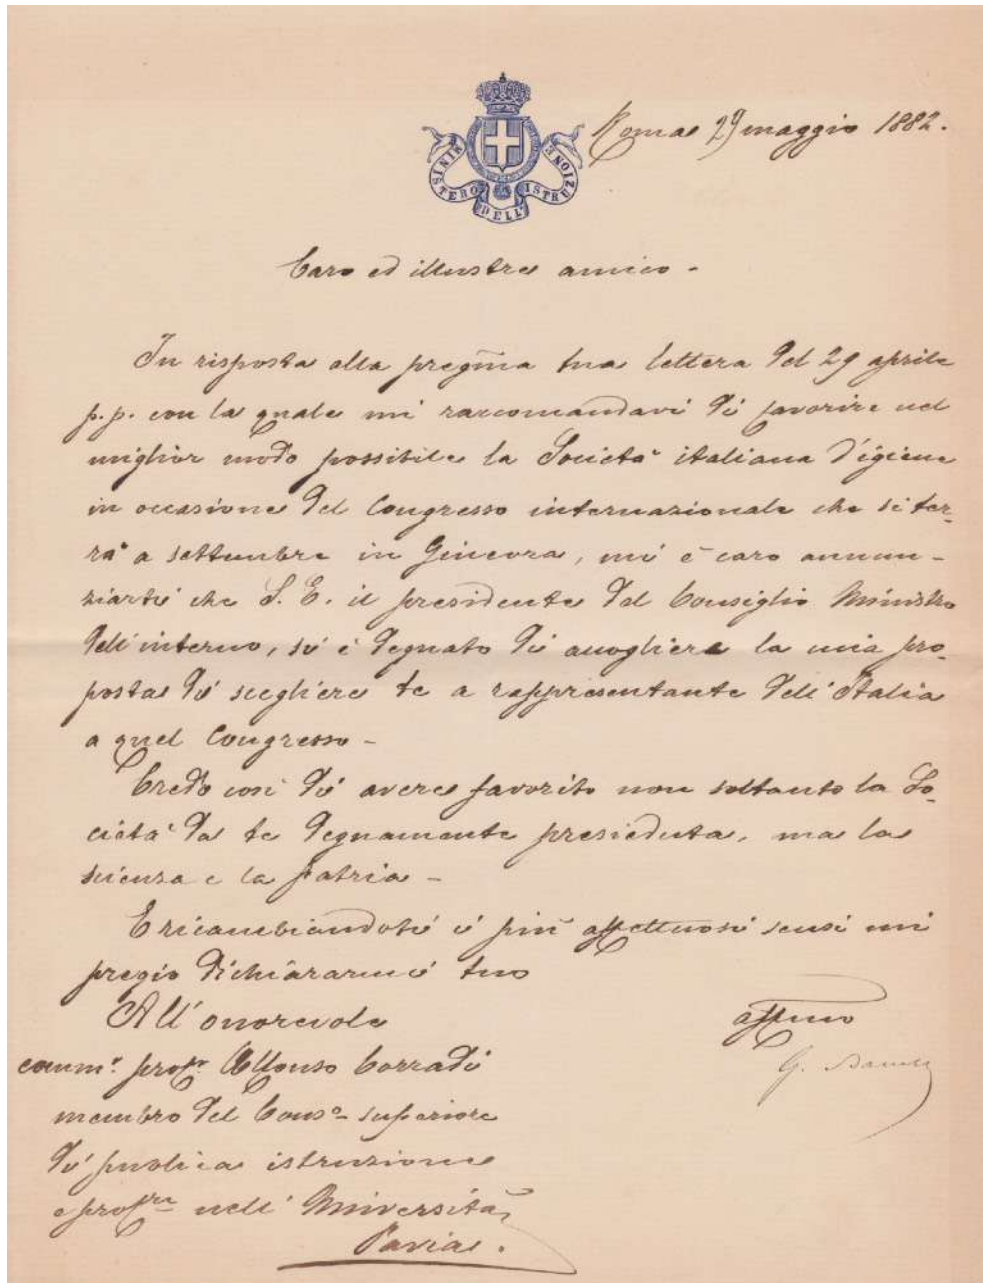 MINISTERO DELL' ISTRUZIONE
Roma 29 maggio 1882.
Caro ed illustre amico -
In risposta alla pregma tua lettera del 29 aprile
p.p. con la quale mi raccomandavi di favorire nel
miglior modo possibile la Società italiana d'igiene
in occasione del Congresso internazionale che si ter-
rà a settembre in Ginevra, mi è caro annun-
ziarti che S. E. il presidente del Consiglio Ministro
dell'interno, si è degnato di accogliere la mia pro-
posta di scegliere te a rappresentante dell'Italia
a quel Congresso -
Credo così di avere favorito non soltanto la So-
cietà da te degnamente presieduta, ma la
scienza e la patria -
E ricambiandoti i più affettuosi sensi mi
pregio dichiararmi tuo
affmo
G.
All'onorevole
comm.r prof.r Alfonso Corradi
membro del Cons.o superiore
di publica istruzione
e prof.re nell'Università,
Pavia.